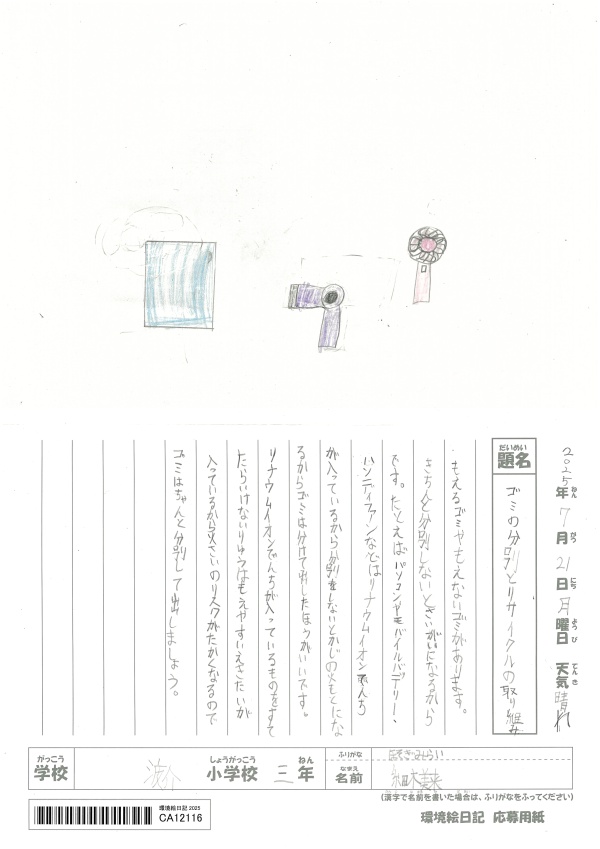 2025年ねん 7月がつ 21日にち 月曜日ようび 天気てんき 晴れ
だいめい
題名 ゴミの分別とリサイクルの取り組み
もえるゴミやもえないゴミがあります。
きちんと分別しないとさいがいになるから
です。たとえばパソコンやモバイルバッテリー、
ハンディファンなどはリチウムイオンでんち
が入っているから分別をしないとかじの火もとにな
るからゴミは分けて出したほうがいいです。
リチウムイオンでんちが入っているものをすて
たらいけないりゆうはもえやすいえきたいが
入っているから火さいのリスクがたかくなるので
ゴミはちゃんと分別して出しましょう。
がっこう
学校
しょうがっこう
小学校
三
ねん
年
ふりがな
なまえ
名前
(漢字で名前を書いた場合は、ふりがなをふってください)
環境絵日記 2025
CA12116
環境絵日記 応募用紙